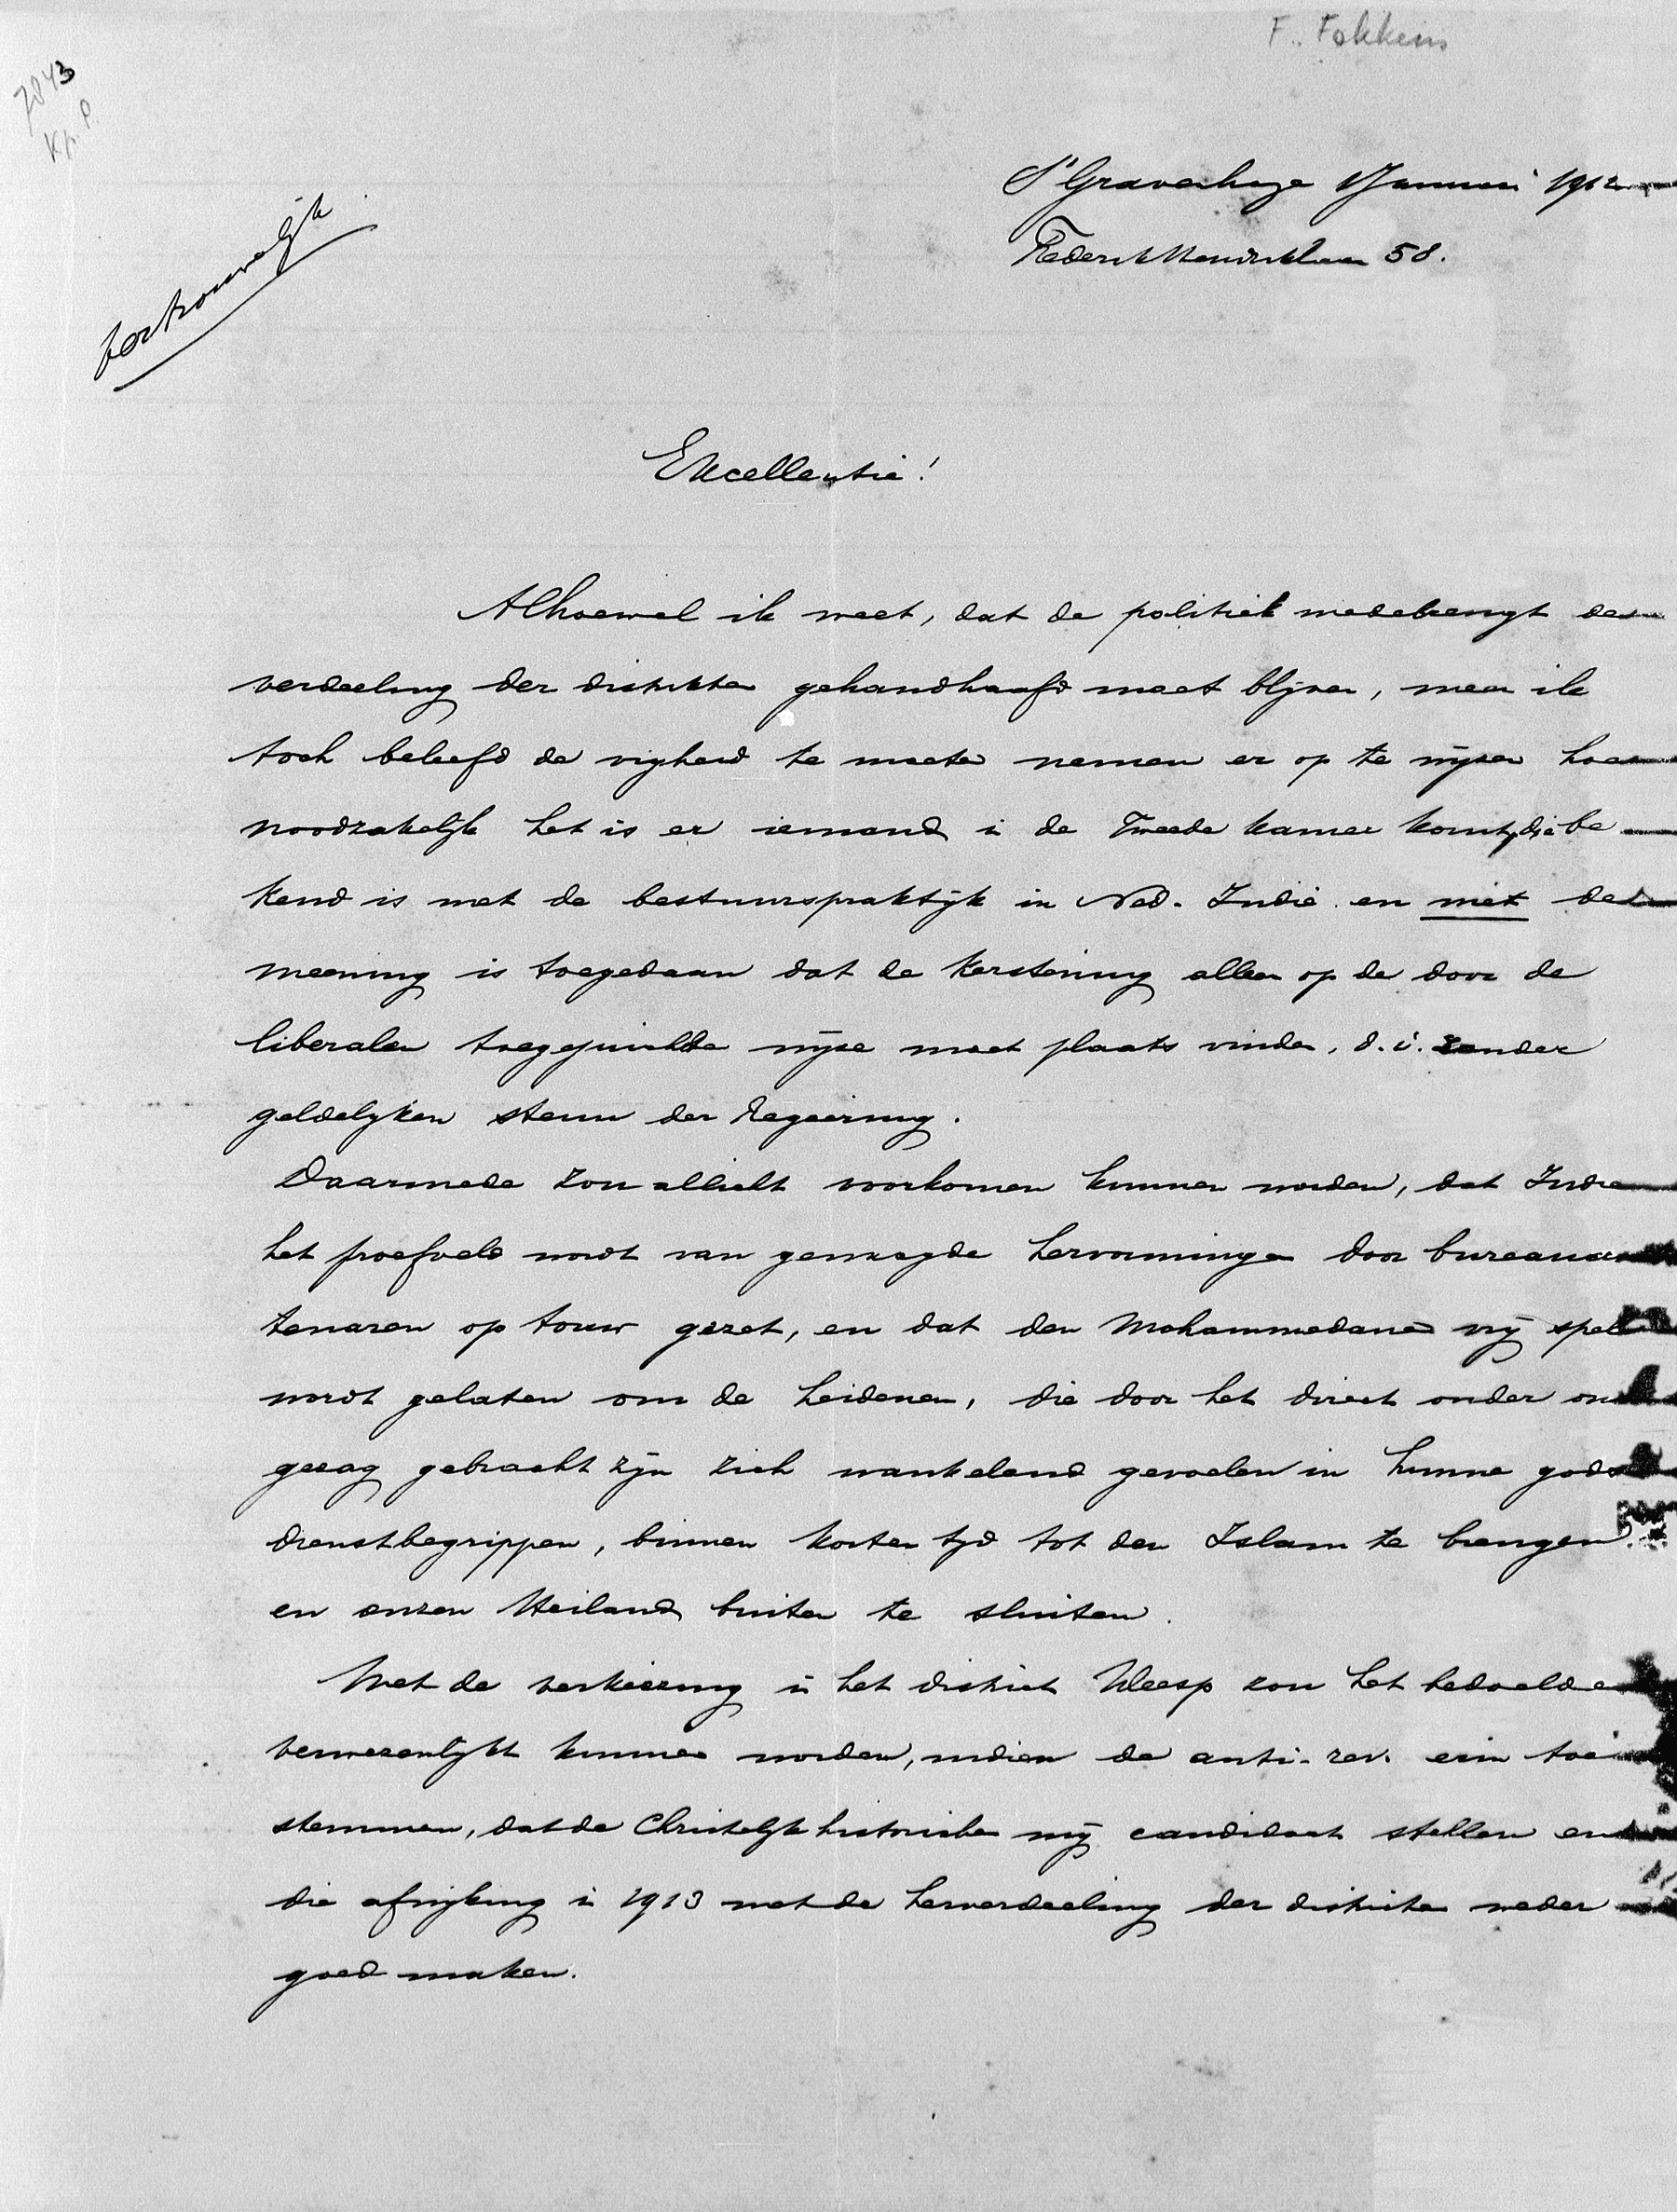 F. Fokkens
7843
Kp. P.
S'Gravenhage 1 Januari 1912
Frederik Hendriklaan 58.
Vertrouwelijk
Excellentie!
Alhoewel ik weet, dat de politiek medebrengt de
verdeeling der distrikten gehandhaafd moet blijven, meen ik
toch beleefd de vrijheid te moeten nemen er op te wijzen hoe
noodzakelijk het is er iemand in de Tweede Kamer komt, die be
kend is met de bestuurspraktijk in Ned. Indië en niet de
meening is toegedaan dat de kerstening alleen op de door de
liberalen toegejuichde wijze moet plaats vinden, d.i. zonder
geldelijken steun der Regeering.
Daarmede zou allicht voorkomen kunnen worden, dat Indië
het proefveld wordt van gewaagde hervormingen door bureau
tenaren op touw gezet, en dat den Mohammedanen vrij spel
wordt gelaten om de heidenen, die door het direct onder ons
gezag gebracht zijn zich wankelend gevoelen in hunne gods
dienstbegrippen, binnen korten tijd tot den Islam te brengen
en onzen Heiland buiten te sluiten.
Met de verkiezing in het district Weesp zou het bedoelde
verwezenlijkt kunnen worden, indien de anti-rev. erin toe
stemmen, dat de Christelijk historischen mij candidaat stellen en
die afwijking in 1913 met de herverdeeling der districten weder
goed maken.